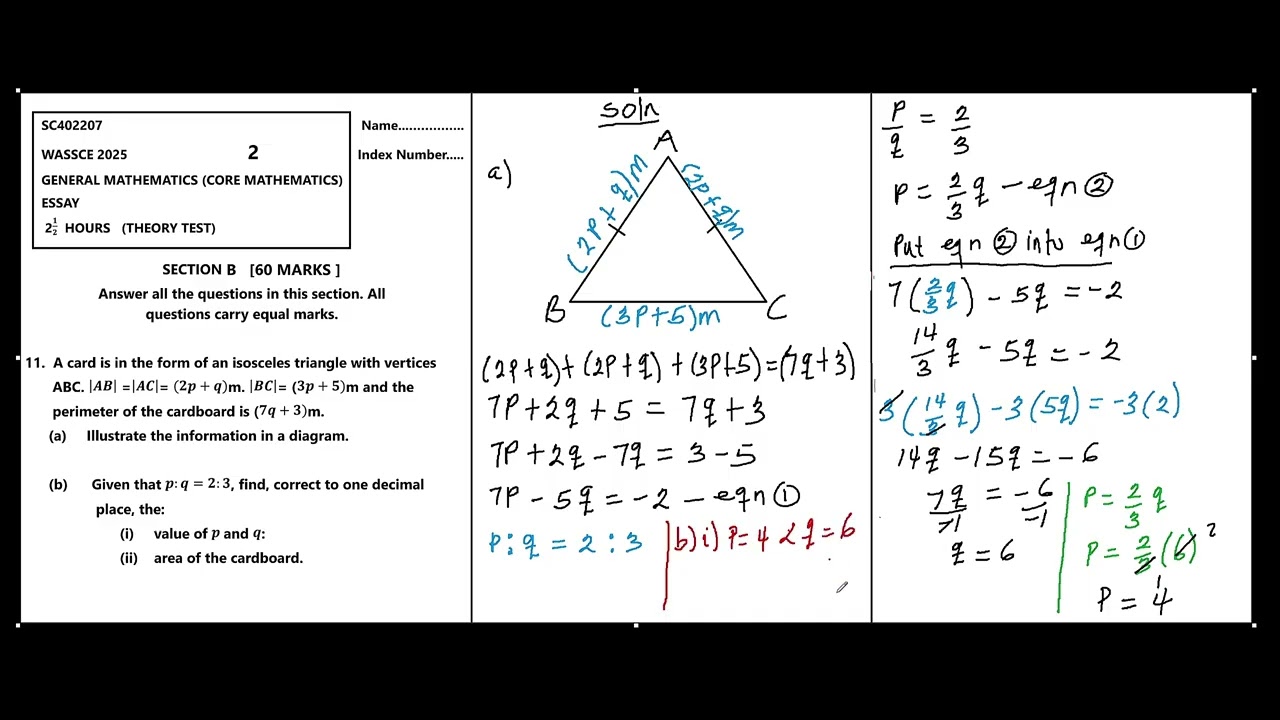 SC402207
Name.................
WASSCE 2025
2
Index Number.....
GENERAL MATHEMATICS (CORE MATHEMATICS)
ESSAY
2½ HOURS (THEORY TEST)
SECTION B [60 MARKS ]
Answer all the questions in this section. All
questions carry equal marks.
11. A card is in the form of an isosceles triangle with vertices
ABC. |AB| =|AC|= (2p + q)m. |BC|= (3p + 5)m and the
perimeter of the cardboard is (7q + 3)m.
(a) Illustrate the information in a diagram.
(b) Given that p: q = 2: 3, find, correct to one decimal
place, the:
(i) value of p and q:
(ii) area of the cardboard.
soln
a)
A
(2P + q)m
(2P + q)m
B
C
(3P+5)m
(2P+q)+(2P+q)+(3P+5)=(7q+3)
7P+2q+5 = 7q+3
7P+2q-7q = 3-5
7P-5q = -2 - eqn ①
P:q = 2:3
b)i) P=4 & q=6
P/q = 2/3
P = 2/3 q - eqn ②
Put eqn ② into eqn ①
7(2/3 q) - 5q = -2
14/3 q - 5q = -2
3(14/3 q) - 3(5q) = -3(2)
14q - 15q = -6
7q/-1 = -6/-1
q = 6
P = 2/3 q
P = 2/3 (6) 2
1
P = 4